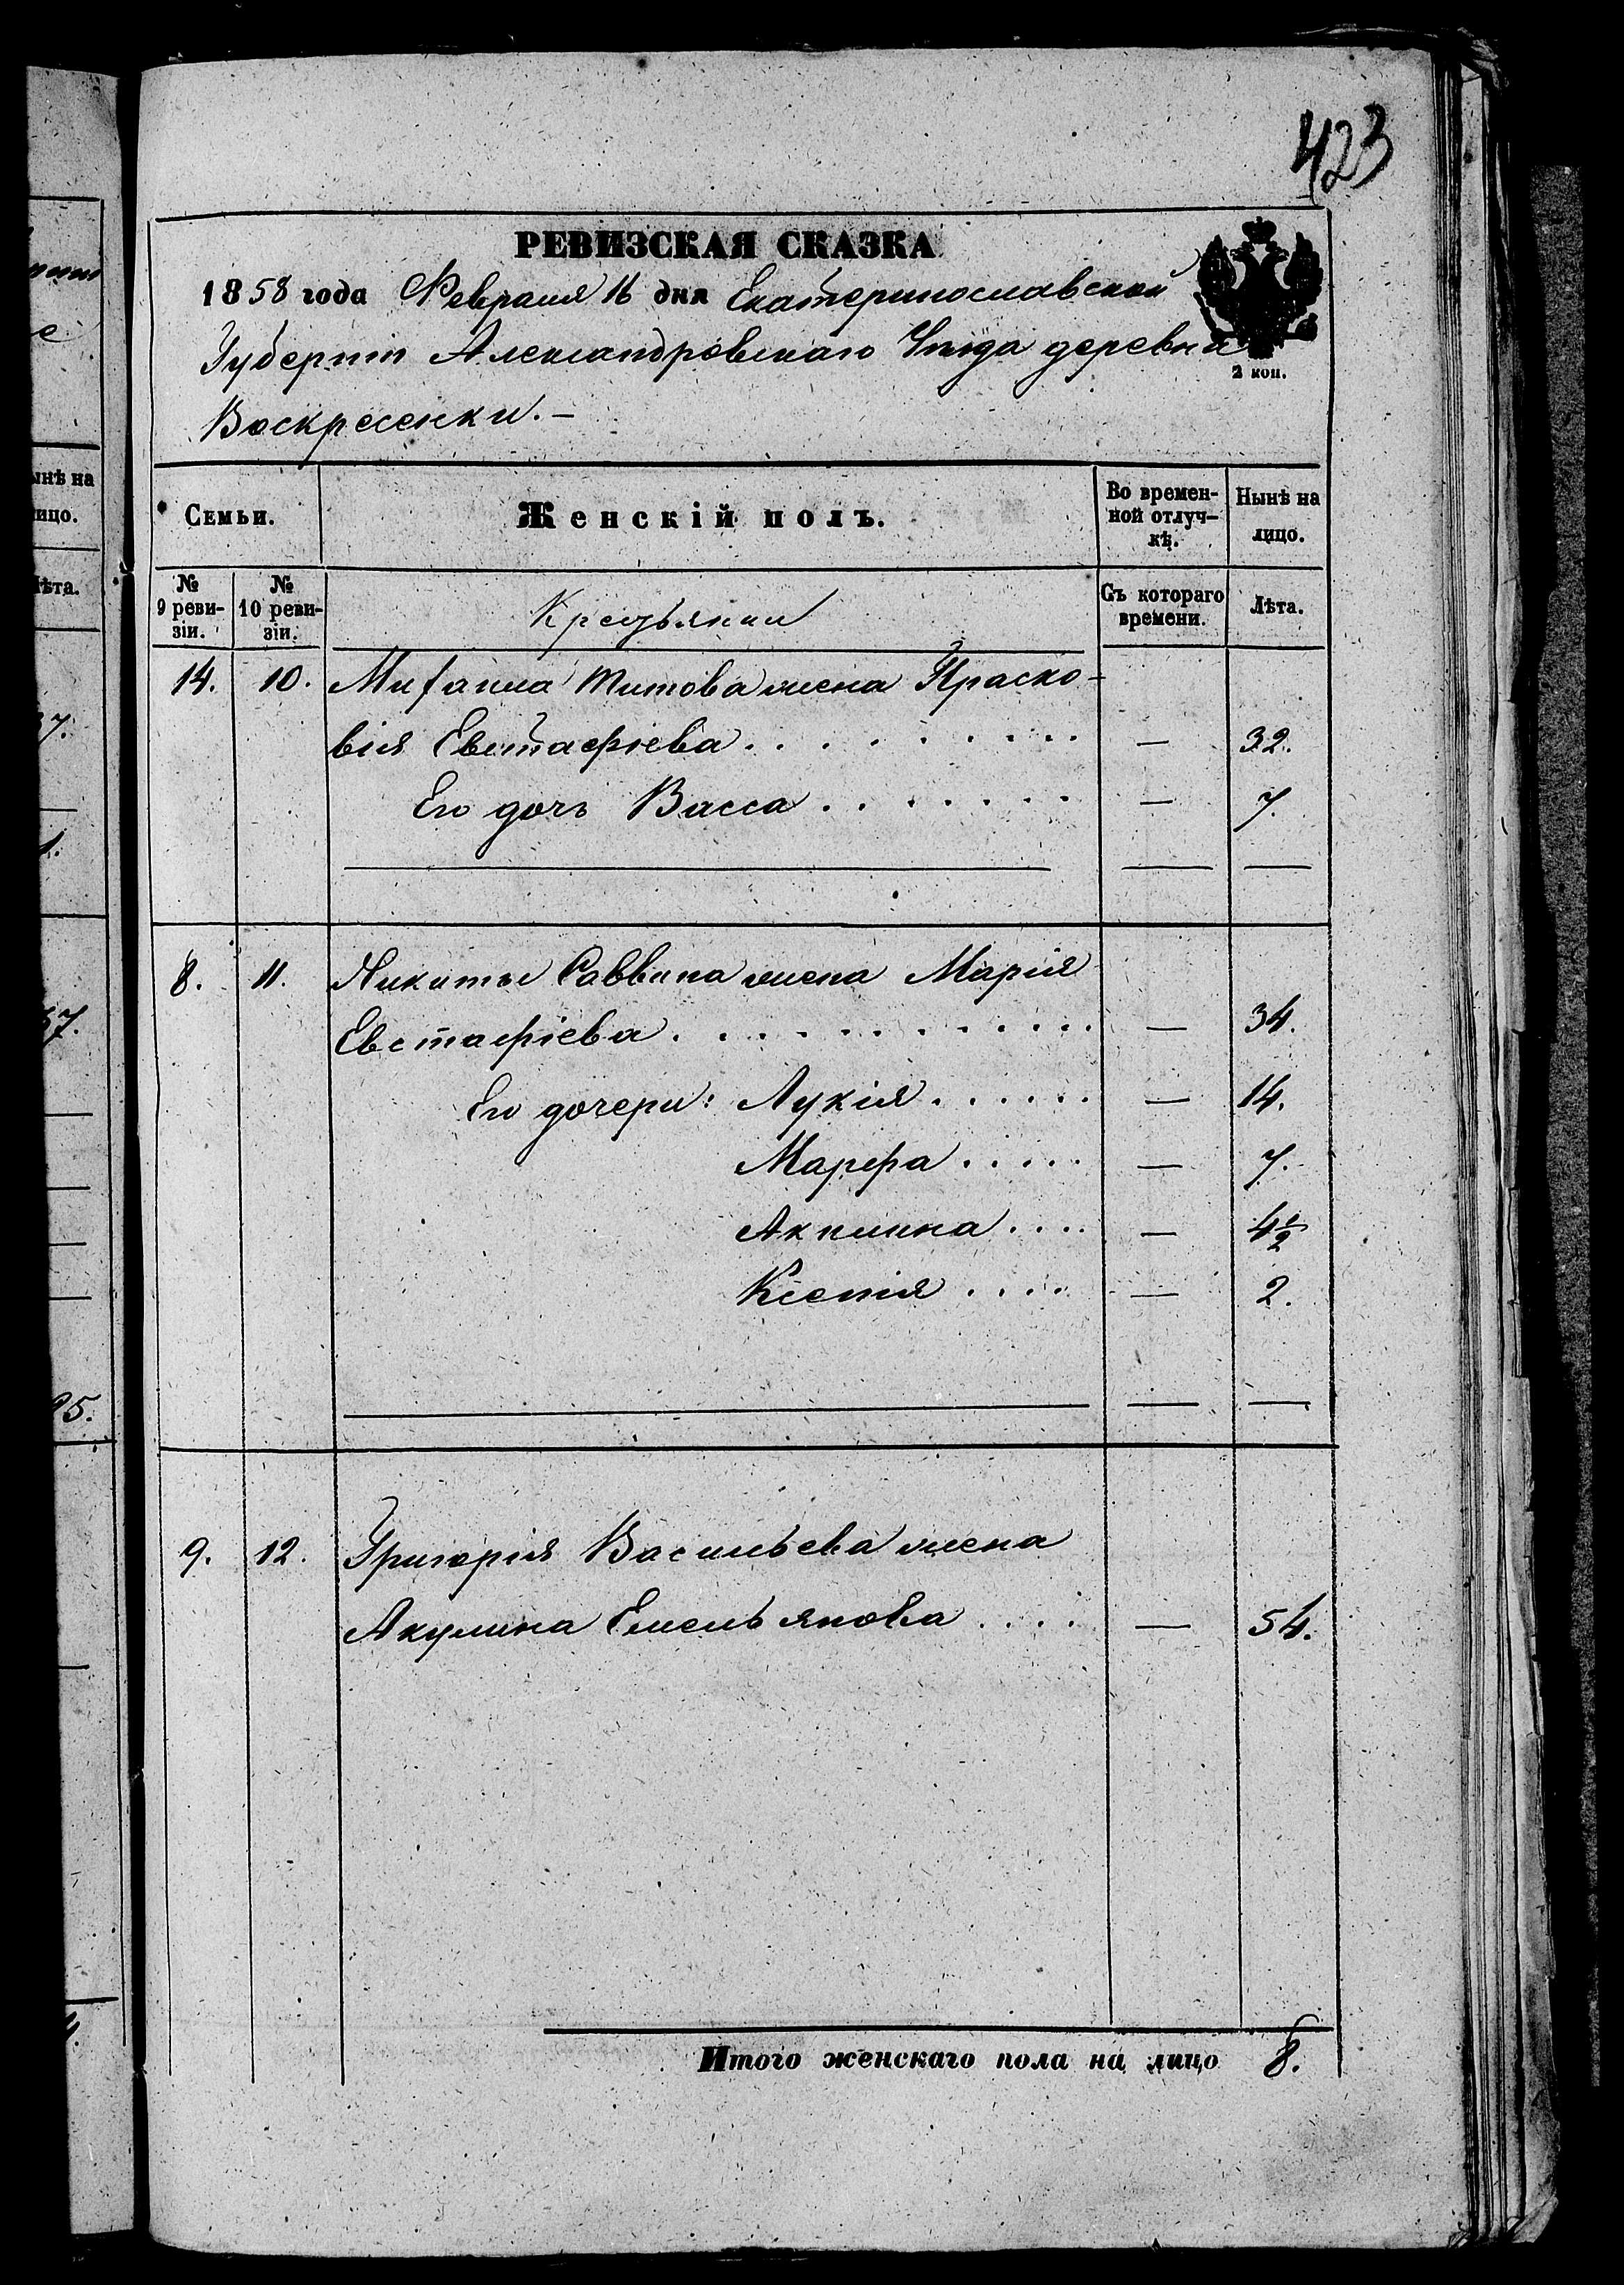 423
РЕВИЗСКАЯ СКАЗКА
1858 года Февраля 16 дня Екатеринославской
Губернiи Александровскаго Уѣзда деревни
2 коп.
Воскресенки. –
Семьи. Женскій полъ. Во времен- Нынѣ на
ной отлуч- лицо.
кѣ.
№ № Съ котораго Лѣта.
9 реви- 10 реви- времени.
зіи. зіи.
14. 10. Титова жена Праско-
вія Евстафіева . . . . . . . . . . — 32.
Его дочь Васса . . . . . . . — 7.
8. 11. Никиты Саввина жена Марія
Евстафіева . . . . . . . . . . . — 34.
Его дочери: Лукія . . . . . . — 14.
Марфа . . . . . — 7.
Акилина . . . . — 4½
Ксенія . . . . — 2.
9. 12. Григорія Васильева жена
Акулина Емельянова . . . . — 54.
Итого женскаго пола на лицо 8.
ынѣ на
ицо.
ѣта.